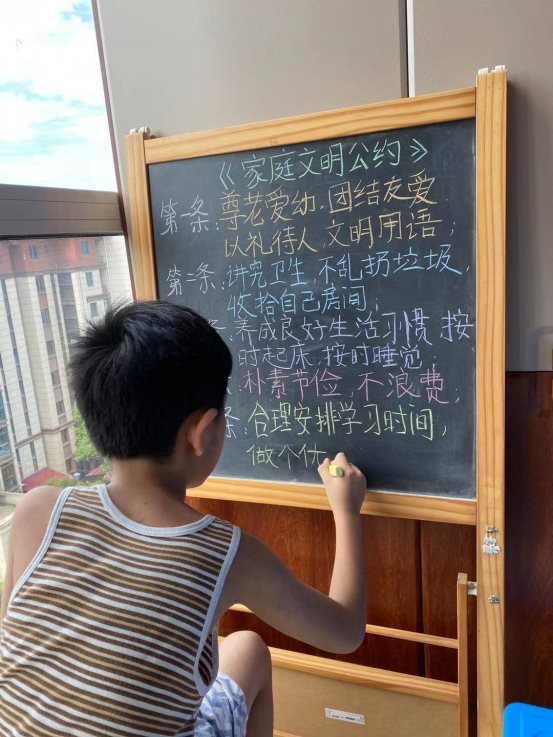 《家庭文明公约》
第一条:尊老爱幼,团结友爱
以礼待人,文明用语;
第二条:讲究卫生,不乱扔垃圾,
收拾自己房间;
条:养成良好生活习惯,按
时起床,按时睡觉;
:朴素节俭,不浪费;
条:合理安排学习时间,
做个